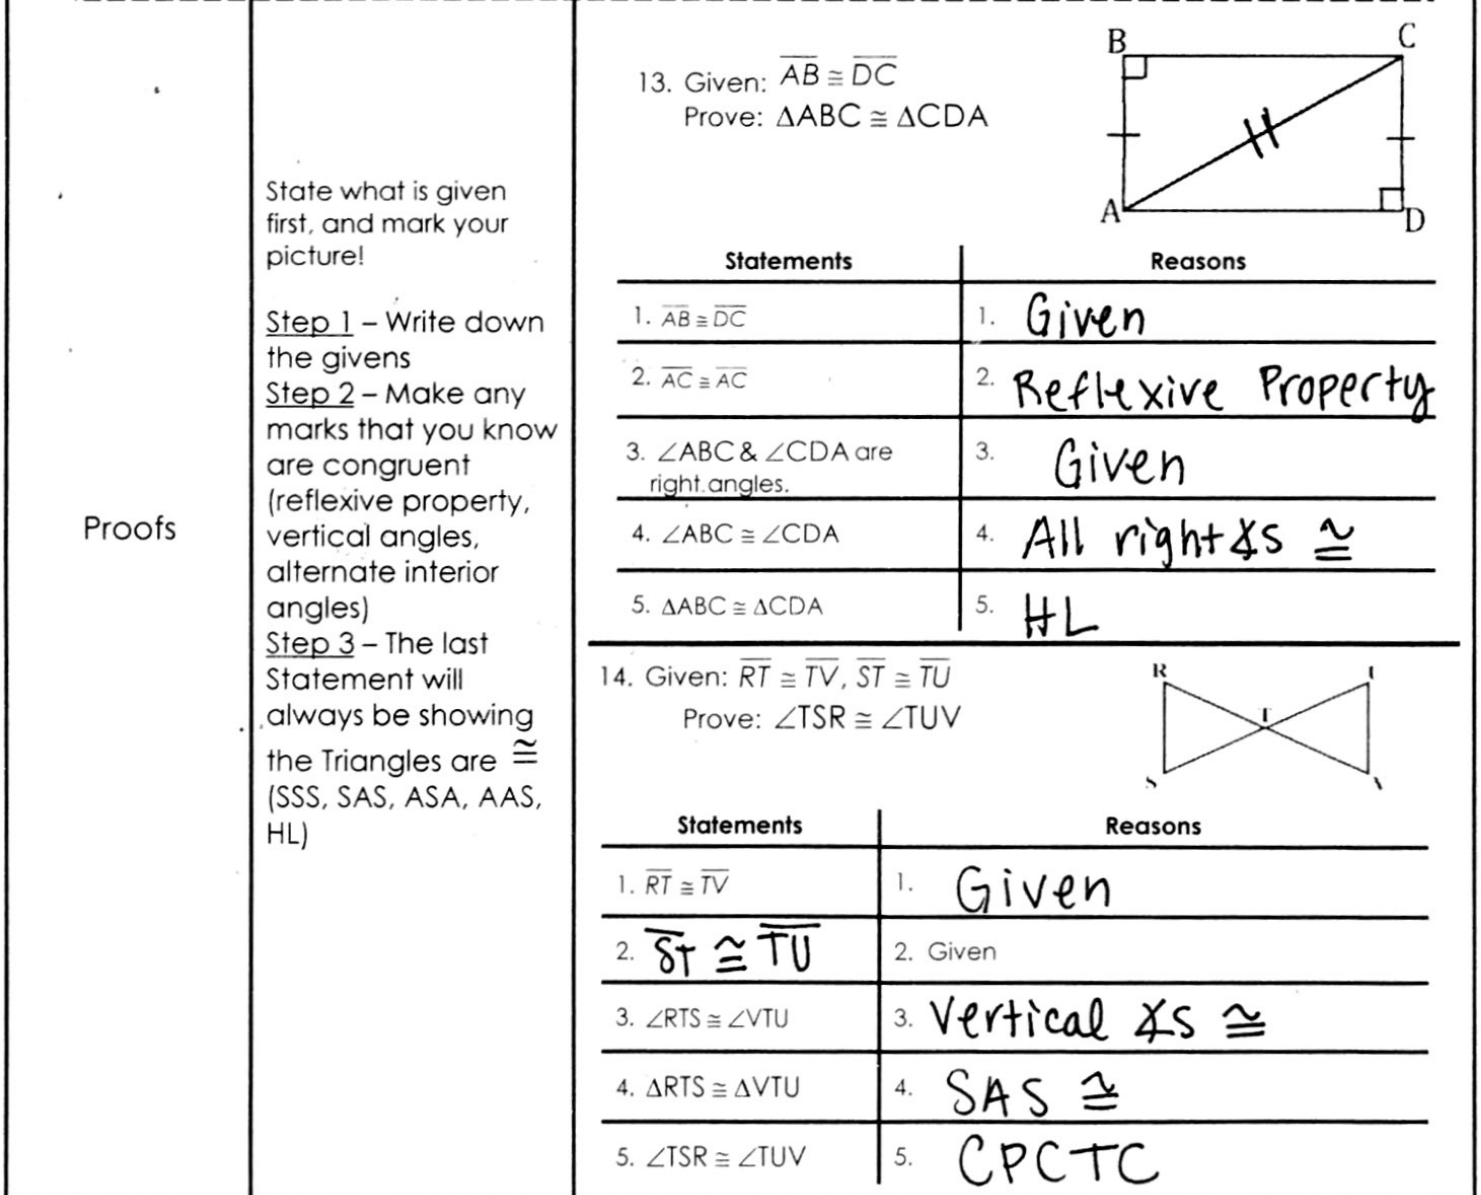 Proofs
State what is given
first, and mark your
picture!
Step 1 – Write down
the givens
Step 2 – Make any
marks that you know
are congruent
(reflexive property,
vertical angles,
alternate interior
angles)
Step 3 – The last
Statement will
always be showing
the Triangles are ≅
(SSS, SAS, ASA, AAS,
HL)
13. Given: A̅B̅ ≅ D̅C̅
Prove: ΔABC ≅ ΔCDA
B C
A D
Statements Reasons
1. A̅B̅ ≅ D̅C̅ 1. Given
2. A̅C̅ ≅ A̅C̅ 2. Reflexive Property
3. ∠ABC & ∠CDA are 3. Given
right angles.
4. ∠ABC ≅ ∠CDA 4. All right ∡s ≅
5. ΔABC ≅ ΔCDA 5. HL
14. Given: R̅T̅ ≅ T̅V̅, S̅T̅ ≅ T̅U̅
Prove: ∠TSR ≅ ∠TUV
R
T
S
Statements Reasons
1. R̅T̅ ≅ T̅V̅ 1. Given
2. S̅T̅ ≅ T̅U̅ 2. Given
3. ∠RTS ≅ ∠VTU 3. Vertical ∡s ≅
4. ΔRTS ≅ ΔVTU 4. SAS ≅
5. ∠TSR ≅ ∠TUV 5. CPCTC